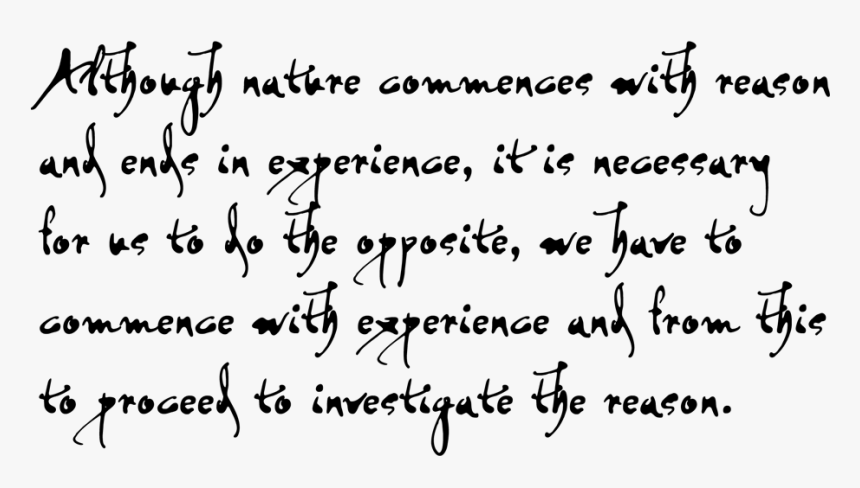 Although nature commences with reason
and ends in experience, it is necessary
for us to do the opposite, we have to
commence with experience and from this
to proceed to investigate the reason.